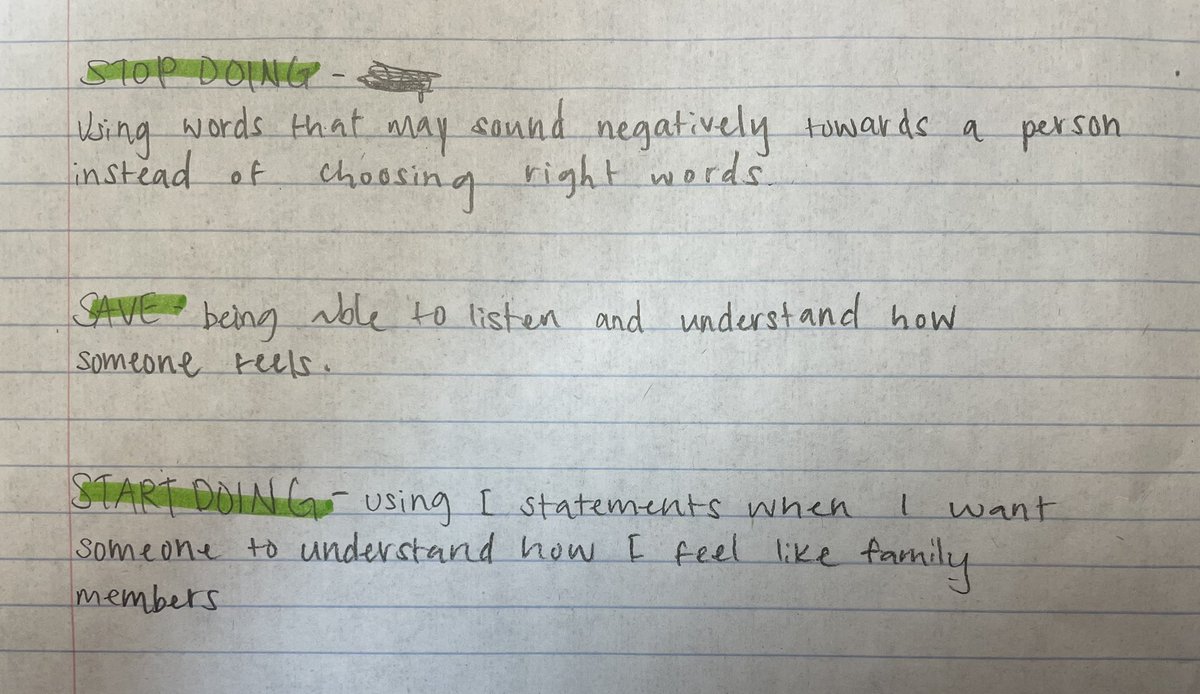 STOP DOING -
Using words that may sound negatively towards a person
instead of choosing right words.
SAVE - being able to listen and understand how
someone feels.
START DOING - using I statements when I want
someone to understand how I feel like family
members